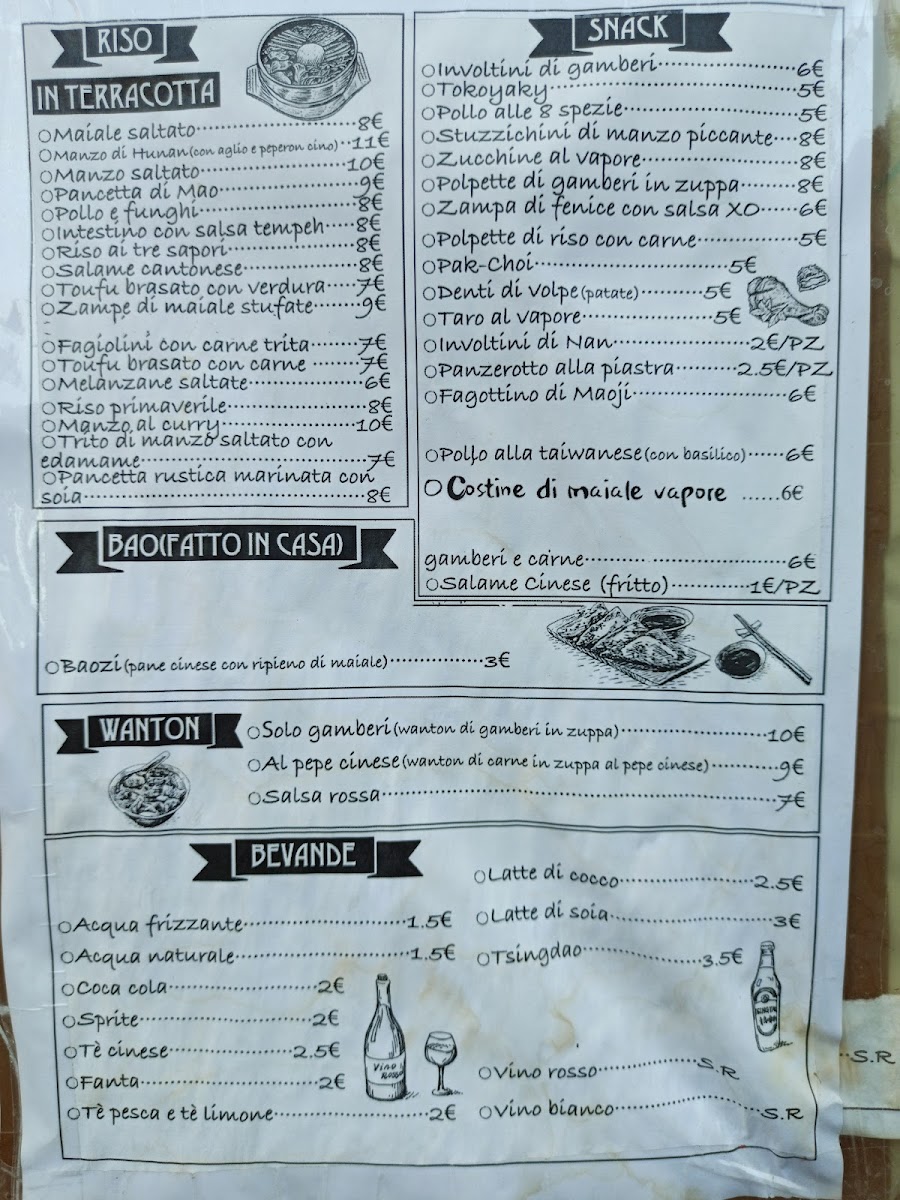 RISO
IN TERRACOTTA
Maiale saltato 8€
Manzo di Hunan (con aglio e peperon cino) 11€
Manzo saltato 10€
Pancetta di Mao 9€
Pollo e funghi 8€
Intestino con salsa tempeh 8€
Riso ai tre sapori 8€
Salame cantonese 8€
Toufu brasato con verdura 7€
Zampe di maiale stufate 9€
Fagiolini con carne trita 7€
Toufu brasato con carne 7€
Melanzane saltate 6€
Riso primaverile 8€
Manzo al curry 10€
Trito di manzo saltato con
edamame 7€
Pancetta rustica marinata con
soia 8€
SNACK
Involtini di gamberi 6€
Tokoyaky 5€
Pollo alle 8 spezie 5€
Stuzzichini di manzo piccante 8€
Zucchine al vapore 8€
Polpette di gamberi in zuppa 8€
Zampa di fenice con salsa XO 6€
Polpette di riso con carne 5€
Pak-Choi 5€
Denti di volpe (patate) 5€
Taro al vapore 5€
Involtini di Nan 2€/PZ
Panzerotto alla piastra 2.5€/PZ
Fagottino di Maoji 6€
Pollo alla taiwanese (con basilico) 6€
Costine di maiale vapore 6€
gamberi e carne 6€
Salame Cinese (fritto) 1€/PZ
BAO(FATTO IN CASA)
Baozi (pane cinese con ripieno di maiale) 3€
WANTON
Solo gamberi (wanton di gamberi in zuppa) 10€
Al pepe cinese (wanton di carne in zuppa al pepe cinese) 9€
Salsa rossa 7€
BEVANDE
Acqua frizzante 1.5€
Acqua naturale 1.5€
Coca cola 2€
Sprite 2€
Tè cinese 2.5€
Fanta 2€
Tè pesca e tè limone 2€
Latte di cocco 2.5€
Latte di soia 3€
Tsingdao 3.5€
Vino rosso S.R
Vino bianco S.R
S.R
VINO